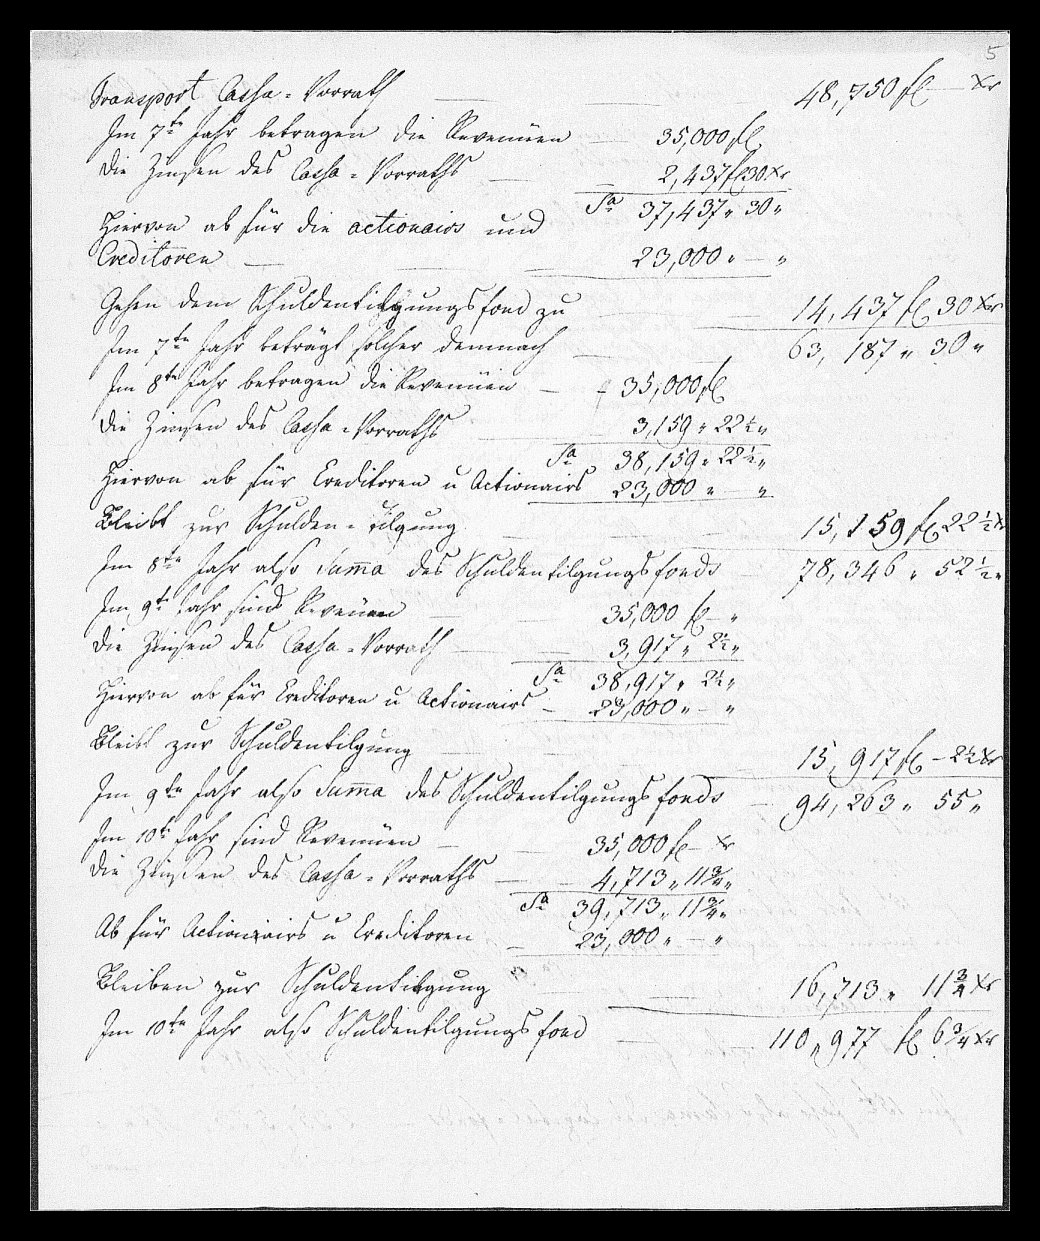 5
Transport Cassa-Vorrath — 48,750 fl — Xr
Im 7ten Jahr betragen die Revenüen 35,000 fl
die Zinsen des Cassa-Vorraths — 2,437 fl 30 Xr
Sa 37,437 " 30 "
Hiervon ab für die actionairs und
Creditoren — 23,000 " — "
Gehen dem Schuldentilgungsfond zu 14,437 fl 30 Xr
Im 7ten Jahr beträgt solcher demnach 63,187 " 30 "
Im 8ten Jahr betragen die Revenüen — 35,000 fl
die Zinsen des Cassa-Vorraths 3,159 " 22 ½ "
Sa 38,159 " 22 ½ "
Hiervon ab für Creditoren u Actionairs 23,000 " — "
Bleibt zur Schulden-tilgung 15,159 fl 22 ½ X
Im 8ten Jahr also Suma des Schuldentilgungsfonds — 78,346 " 52 ½ "
Im 9te Jahr sind Revenüen — 35,000 fl — "
die Zinsen des Cassa-Vorrath — 3,917 " 2½ "
Sa 38,917 " 2½ "
Hiervon ab für Creditoren u Actionairs — 23,000 " — "
Bleibt zur Schuldentilgung 15,917 fl — 2½ Xr
Im 9ten Jahr also Suma des Schuldentilgungsfonds — 94,263 " 55 "
Im 10te Jahr sind Revenüen — 35,000 fl — Xr
die Zinsen des Cassa-Vorraths — 4,713 " 11¾ "
Sa 39,713 " 11¾ "
Ab für Actionairs u Creditoren — 23,000 " — "
Bleiben zur Schuldentilgung 16,713 " 11¾ Xr
Im 10ten Jahr also Schuldentilgungsfond — 110 " 977 fl 6¾ Xr